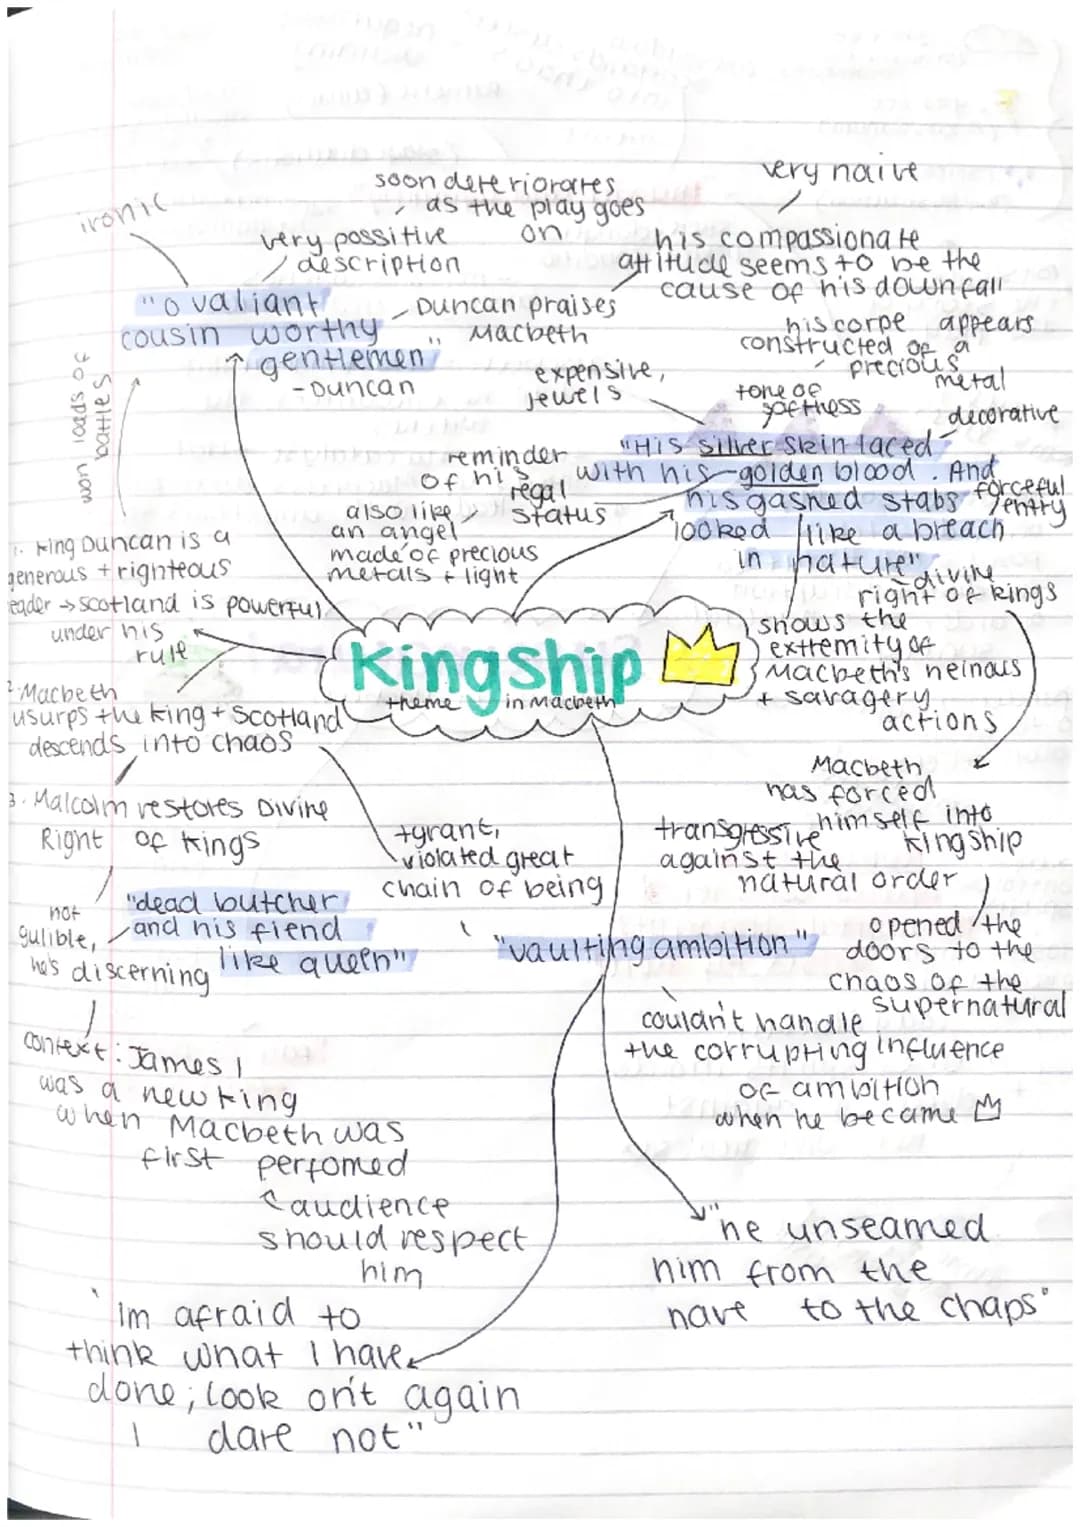 ironic
very possitive
description
soon deteriorates
as the play goes
on
very naive
his compassionate
attitude seems to be the
cause of his downfall
"O valiant
cousin worthy
gentlemen"
-Duncan
Duncan praises
Macbeth
won loads of
battles
expensive,
jewels
tone of
softness
his corpe appears
constructed of a
precious
metal
decorative
"His silver skin laced
with his golden blood. And
his gashed stabs
looked like a breach
in nature"
forceful
entry
reminder
of his
regal
status
also like
an angel
made of precious
metals + light
1. King Duncan is a
generous + righteous
leader → Scotland is powerful
under his
rule
Kingship
theme in Macbeth
divine
right of kings
shows the
extremity of
Macbeth's heinous
+ savagery
actions
2. Macbeth
usurps the king + Scotland
descends into chaos
3. Malcolm restores Divine
Right of Kings
tyrant,
violated great
chain of being
Macbeth
has forced
himself into
kingship
transgressive
against the
natural order
opened the
doors to the
chaos of the
supernatural
"dead butcher
and his fiend
like queen"
not
gulible,
he's discerning
"vaulting ambition"
couldn't handle
the corrupting influence
of ambition
when he became
context: James I
was a new king
when Macbeth was
first perfomed
audience
should respect
him
"he unseamed
him from the
nave to the chaps"
'Im afraid to
think what I have
done; look on't again
I dare not"